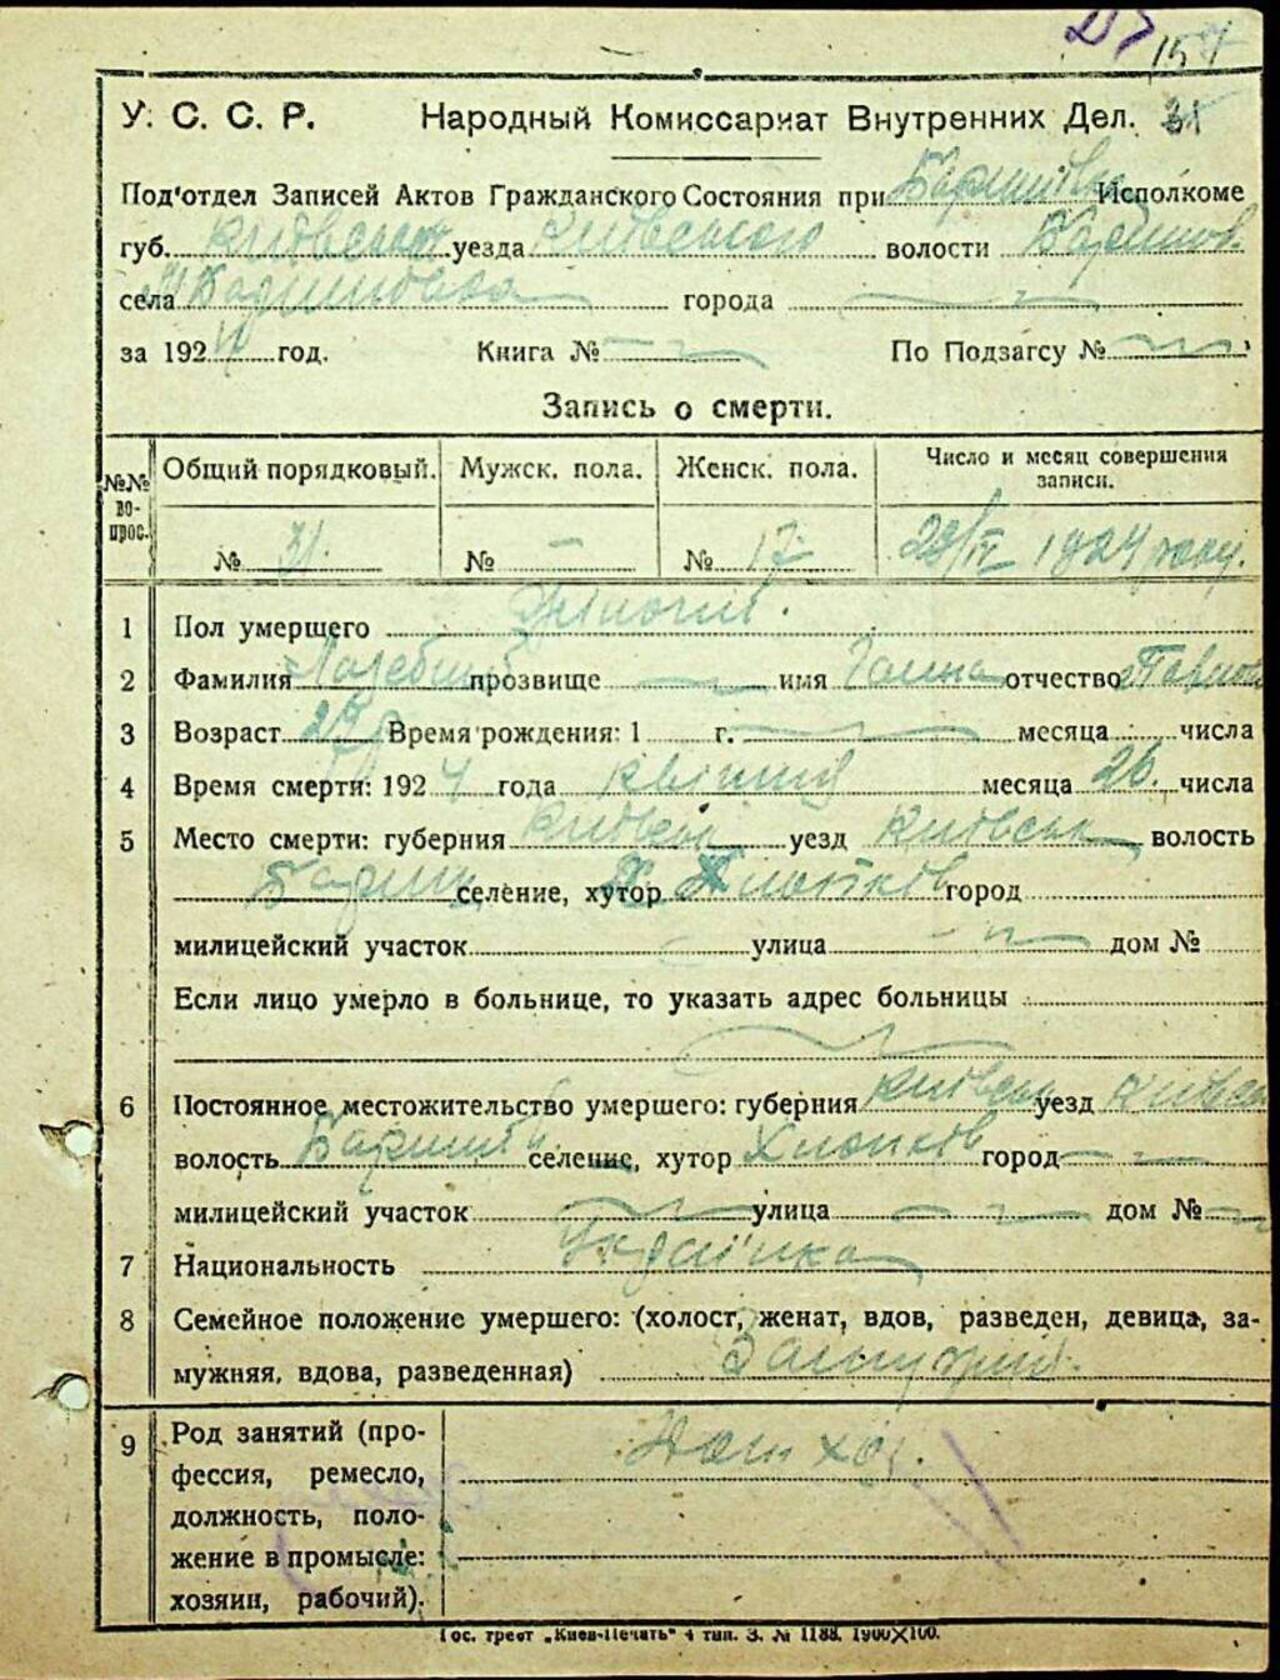 157
У. С. С. Р. Народный Комиссариат Внутренних Дел. 31
Под'отдел Записей Актов Гражданского Состояния при Баришівс Исполкоме
губ. Київської уезда Київського волости Баришов.
села М Баришовка города
за 1924 год. Книга № По Подзагсу №
Запись о смерти.
№№ вопрос. Общий порядковый. Мужск. пола. Женск. пола. Число и месяц совершения записи.
№ 31. № — № 17 29/IV 1924 року.
1 Пол умершего Жіночій.
2 Фамилия прозвище имя Ганна отчество Павлов
3 Возраст Время рождения: 1 г. месяца числа
4 Время смерти: 1924 года квітня месяца 26. числа
5 Место смерти: губерния Київськ уезд Київськ волость
Бариш селение, хутор Хлопків город
милицейский участок улица дом №
Если лицо умерло в больнице, то указать адрес больницы
6 Постоянное местожительство умершего: губерния Київськ уезд Київськ
волость Баришів селение, хутор Хлопків город
милицейский участок улица дом №
7 Национальность Українка
8 Семейное положение умершего: (холост, женат, вдов, разведен, девица, за-
мужняя, вдова, разведенная) Замужня.
9 Род занятий (про- Дом хоз.
фессия, ремесло,
должность, поло-
жение в промысле:
хозяин, рабочий).
Гос. трест „Киев-Печать" 4 тип. З. № 1188. 1900X100.